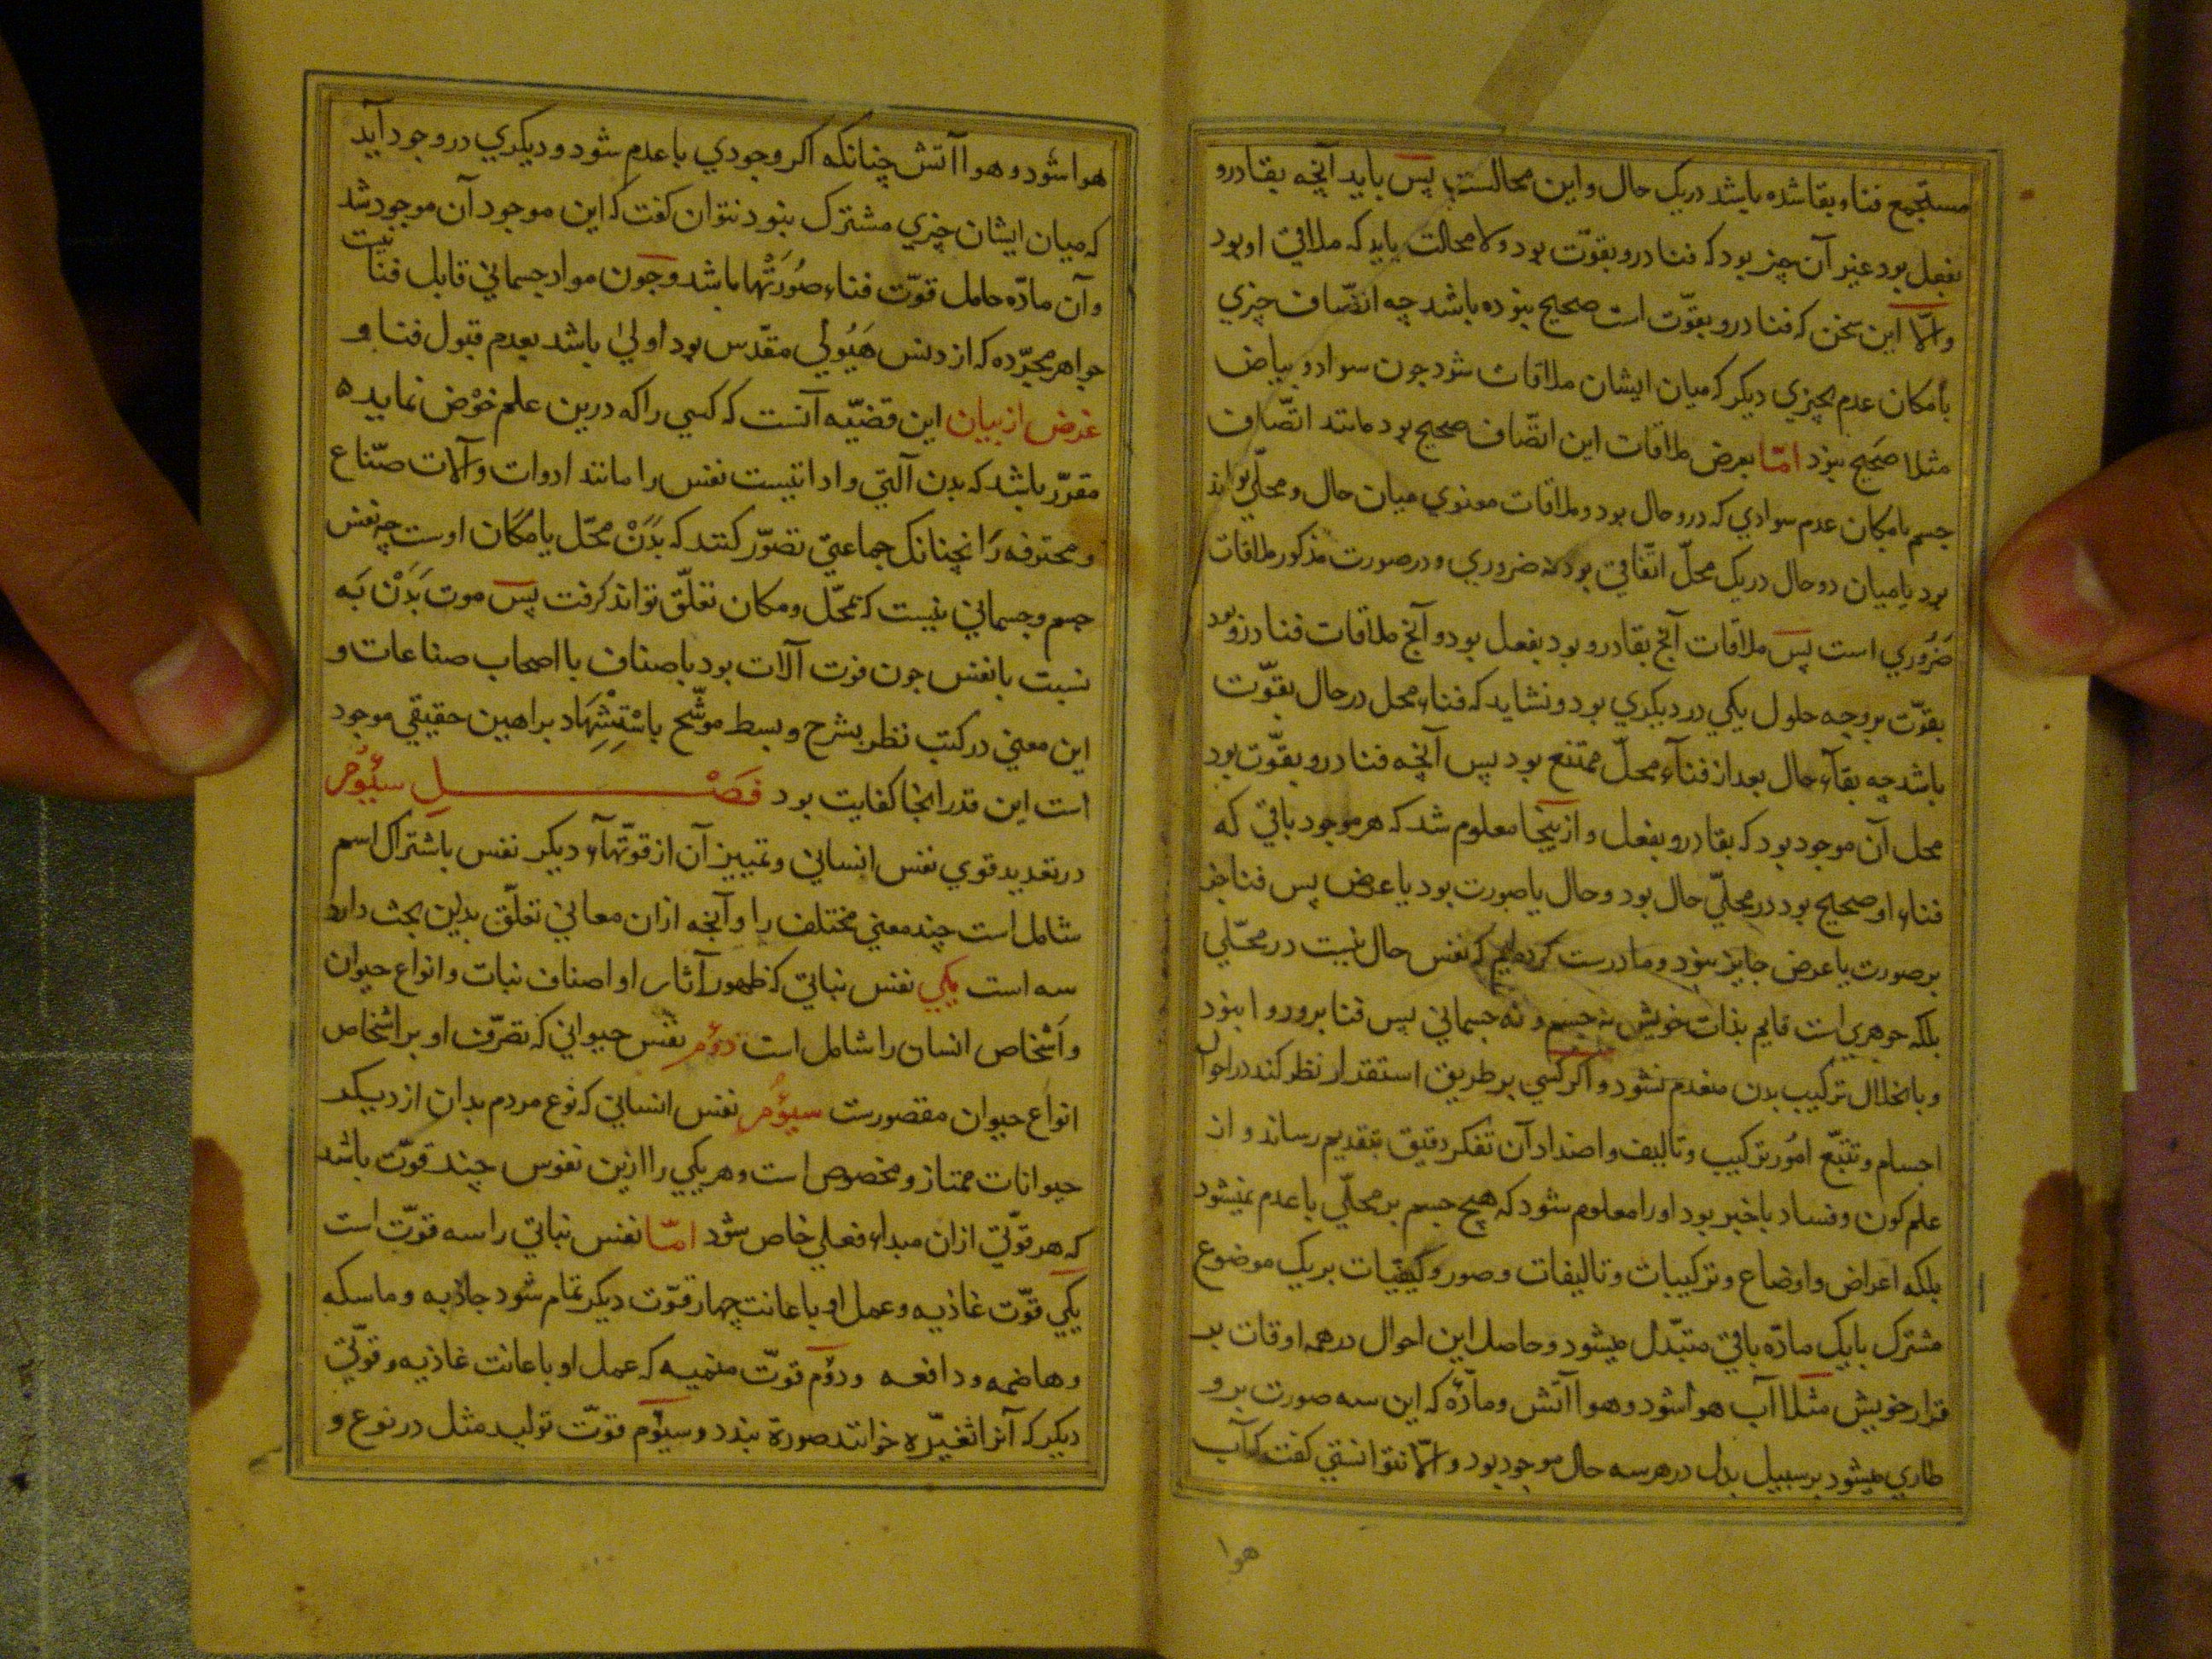 مستجمع فنا و بقا شده باشد در یک حال و این محالست پس باید آنچه بقا درو
بفعل بود غیر آن چیز بود که فنا درو بقوّت بود و لا محالت باید که ملاقی او بود
و الّا این سخن که فنا درو بقوّت است صحیح نبوده باشد چه اتّصاف چیزی
بامکان عدم چیزی دیکر که میان ایشان ملاقات نبود چون سواد و بیاض
مثلا صحیح نبود امّا بعرض ملاقات این اتّصاف صحیح بود مانند اتّصاف
جسم بامکان عدم سوادی که درو حال بود و ملاقات معنوی میان حال و محلّی تواند
بود یا میان دو حال در یک محلّ اتّفاقی بود نه ضروری و در صورت مذکور ملاقات
ضَروری است پس ملاقات آنچ بقا درو بود بفعل بود و آنچ ملاقات فنا درو بود
بقوّت بر وجه حلول یکی در دیکری بود و نشاید که فناء محل در حال بقوّت
باشد چه بقآء حال بعد از فنآء محلّ ممتنع بود پس آنچه فنا درو بقوّت بود
محل آن موجود بود که بقا درو بفعل و ازینجا معلوم شد که هر موجود باقی که
فناء او صحیح بود در محلّی حال بود و حال یا صورت بود یا عرض پس فنا جز
بر صورت یا عرض جایز نبود و ما درست کرده‌ایم که نفس حال نیست در محلّی
بلکه جوهری است قایم بذات خویش نه جسم و نه جسمانی پس فنا برو روا نبود
و بانحلال ترکیب بدن منعدم نشود و اکر کسی بر طریق استقرار نظر کند در احوال
اجسام و تتبّع امُور ترکیب و تالیف و اضداد آن تفکر دقیق بتقدیم رساند و از
علم کون و فساد باخبر بود او را معلوم شود که هیچ جسم بر محلّی باعدم نمیشود
بلکه اعراض و اوضاع و ترکیبات و تالیفات و صور و کیفیات بر یک موضوع
مشترک یا یک مادّه باقی متبدّل میشود و حاصل این احوال در همه اوقات بر
قرار خویش مثلا آب هوا شود و هوا آتش و مادّهٔ که این سه صورت برو
طاری میشود بر سبیل بدل در هر سه حال موجود بود و الّا نتوانستی کفت که آب
هوا
هوا شود و هوا آتش چنانکه اکر وجودی باعدم شود و دیکری در وجود آید
که میان ایشان چیزی مشترک نبود نتوان کفت که این موجود آن موجود شد
و آن مادّه حامل قوّت فناء صُورَتْها باشد و چون مواد جسمانی قابل فنا نیست
جواهر مجرّده که از دنس هَیُولی مقدّس بود اولیٰ باشد بعدم قبول فنا و
غرض از بیان این قضیّه آنست که کسی را که درین علم خوْض نماید
مقرّر باشد که بدن آلتی و اداتیست نفس را مانند ادوات و آلات صنّاع
و محترفه رَا نچنانک جماعتی تصوّر کنند که بَدَنْ محلّ یا مکَان اوست چه نفس
جسم و جسمانی نیست که بمحّل و مکان تعلّق تواند کرفت پس موت بَدَنْ بَه
نسبت با نفس چون فوت آلات بود باصناف با اصحاب صناعات و
این معنی در کتب نظر بشرح و بسط موشّح باسْتِشْهَاد براهین حقیقی موجود
است این قدر اینجا کفایت بود فَصْل سیُوم
در تعدید قوی نفس انسانی و تمییز آن از قوّتهآء دیکر نفس باشتراک اسم
شامل است چند معنی مختلف را و آنچه ازان معانی تعلّق بدین بحث دارد
سه است یکی نفس نباتی که ظهور آثار او اصناف نبات و انواع حیوان
و اَشخاص انسان را شامل است دوُم نفس حیوانی که تصرّف او بر اشخاص
انواع حیوان مقصورست سیوُم نفس انسانی که نوع مردم بدان از دیکر
حیوانات ممتاز و مخصوص است و هر یکی را ازین نفوس چند قوّت باشد
که هر قوّتی ازان مبداء فعلی خاص شود امّا نفس نباتی را سه قوّت است
یکی قوّت غاذیه و عمل او باعانت چهار قوّت دیکر تمام شود جاذبه و ماسکه
و هاضمه و دافعه و دوُم قوّت منمیه که عمل او باعانت غاذیه و قوّتی
دیکر که آنرا مُغیّره خوانند صورة بندد و سیُوم قوّت تولید مثل در نوع و